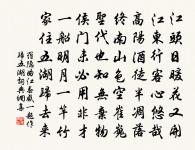 江頭日暖花又開
江東行客心悠哉
高陽酒徒半凋落
終南山色空崔嵬
聖代也知無棄物
侯門未必用非才
一船明月一竿竹
家住五湖歸去來
羅隱曲江春感一題作
歸五湖詞典網書